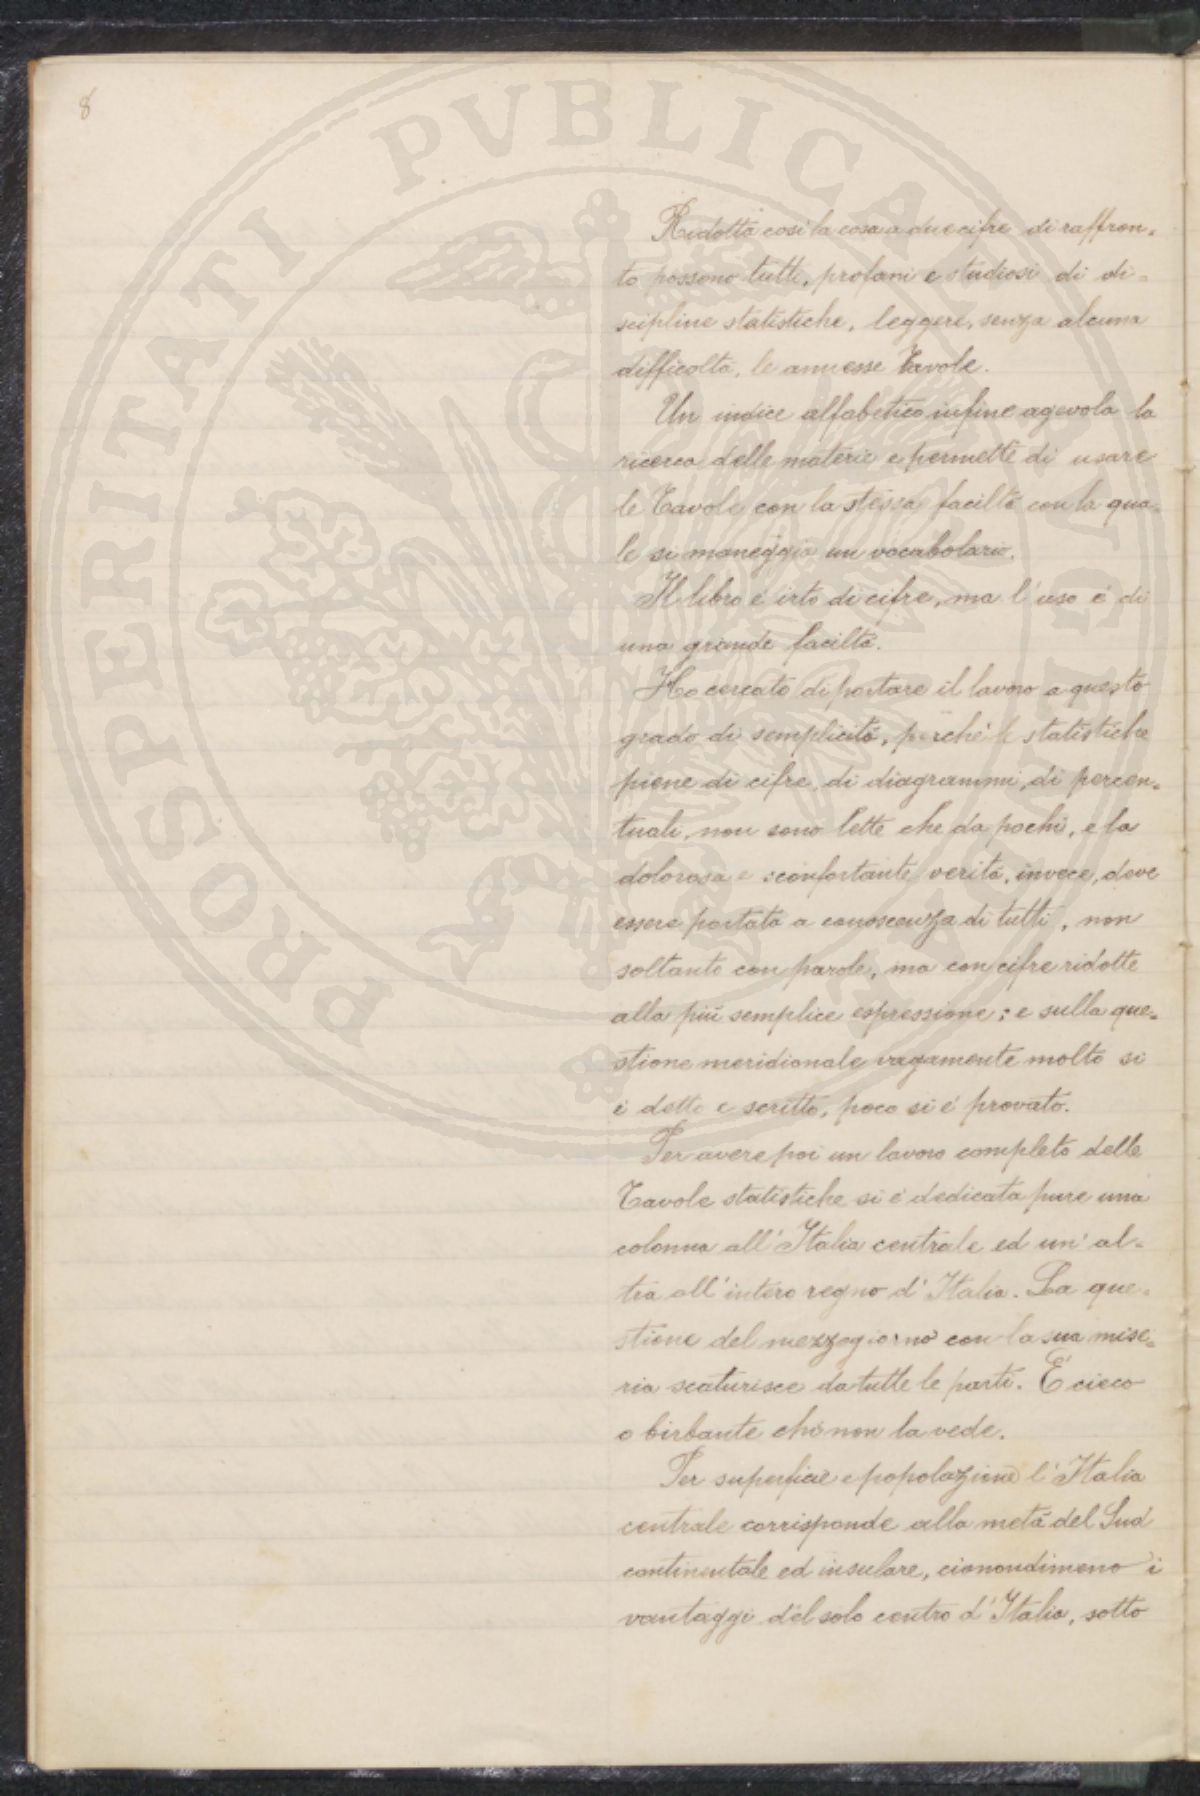 8
PROSPERITATI PVBLICAE
Ridotta così la cosa a due cifre di raffron-
to possono tutti, profani e studiosi di di-
scipline statistiche, leggere, senza alcuna
difficoltà, le annesse Tavole.
Un indice alfabetico infine agevola la
ricerca delle materie e permette di usare
le Tavole con la stessa facilità con la qua-
le si maneggia un vocabolario.
Il libro é irto di cifre, ma l'uso é di
una grande facilità.
Ho cercato di portare il lavoro a questo
grado di semplicità, perché le statistiche
piene di cifre, di diagrammi, di percen-
tuali, non sono lette che da pochi, e la
dolorosa e sconfortante verità, invece, deve
essere portata a conoscenza di tutti, non
soltanto con parole, ma con cifre ridotte
alla più semplice espressione; e sulla que-
stione meridionale vagamente molto si
é detto e scritto, poco si é provato.
Per avere poi un lavoro completo delle
Tavole statistiche si é dedicata pure una
colonna all'Italia centrale ed un'al-
tra all'intero regno d'Italia. La que-
stione del mezzogiorno con la sua mise-
ria scaturisce da tutte le parti. É cieco
o birbante chi non la vede.
Per superficie e popolazione l'Italia
centrale corrisponde alla metà del Sud
continentale ed insulare, cionondimeno i
vantaggi del solo centro d'Italia, sotto